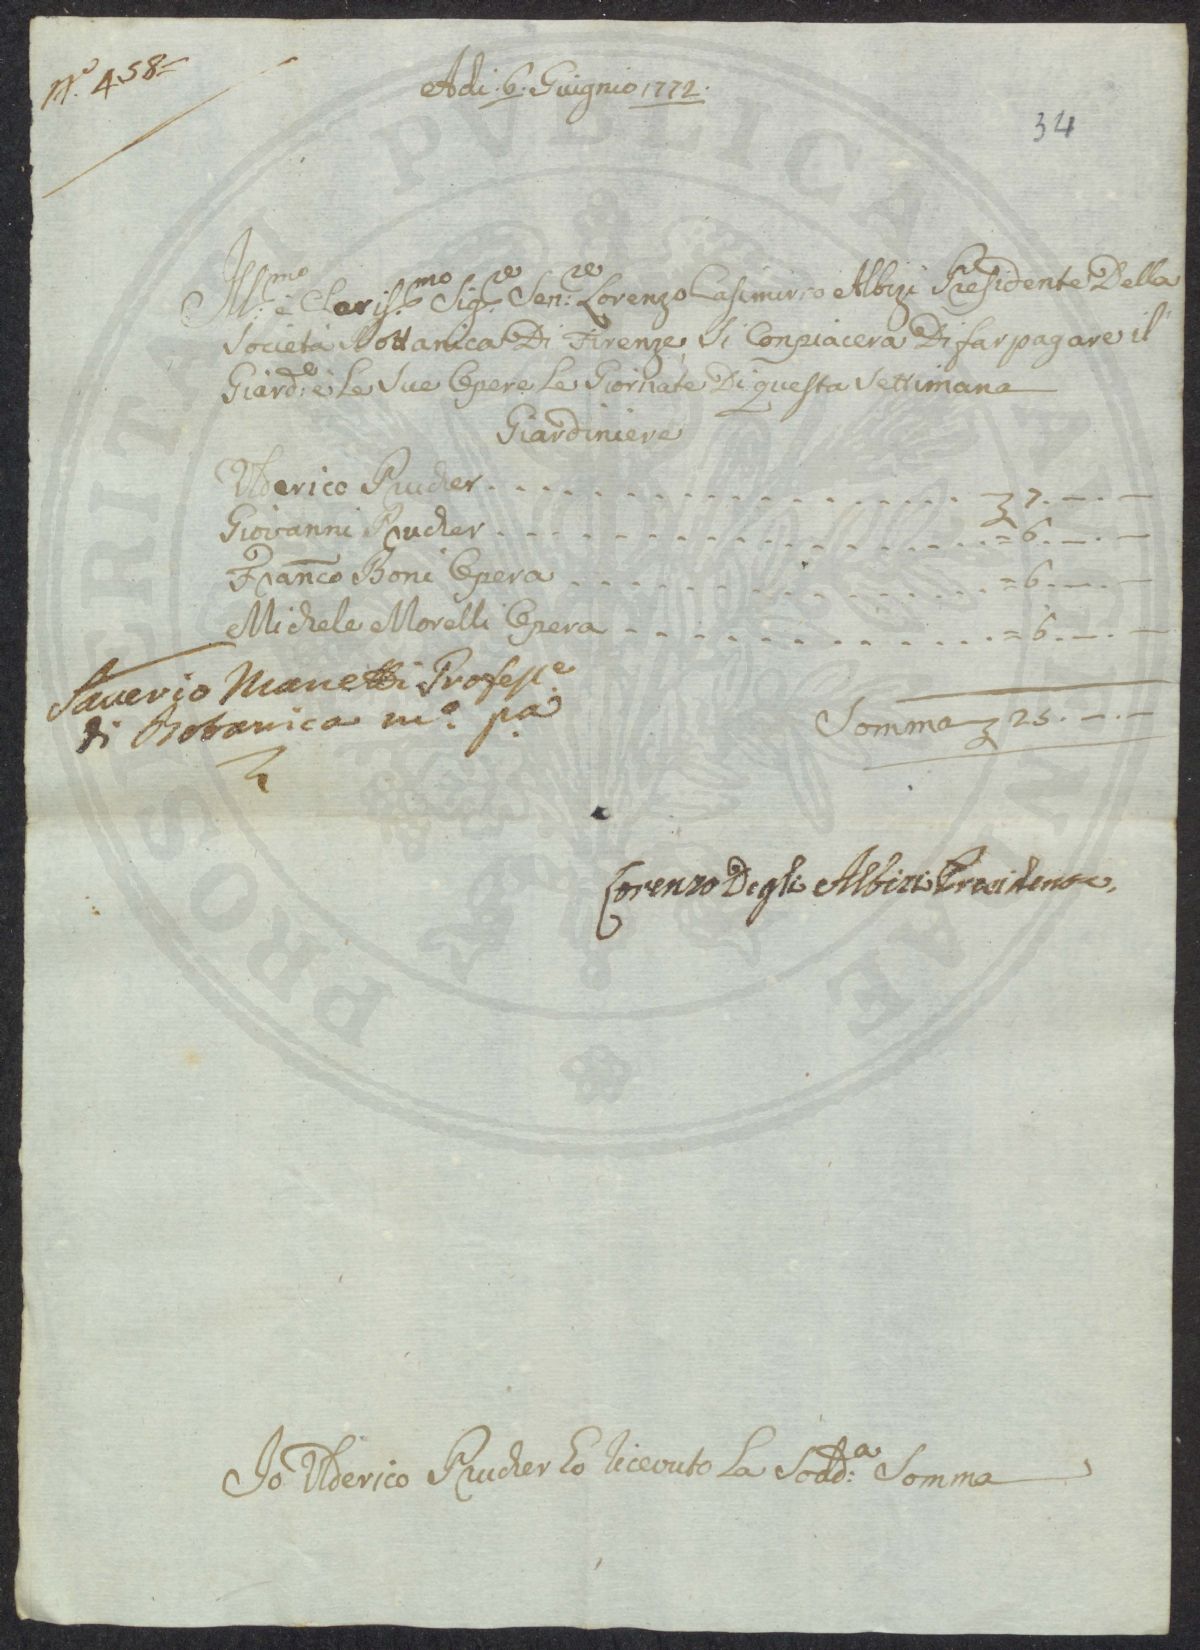 N.º 458
Adi. 6. Giugnio 1772.
34
Ill:mo e Clariss:mo Sig:re Sen:re Lorenzo Casimirro Albizi Presidente Della
Società Bottanica Di Firenze, Si Conpiacera Di far pagare il
Giard:e e Le Sue Opere Le Giornate Di questa Settimana
Giardiniere
Ulderico Prucher . . . . . . . . . . . . 7. — . —
Giovanni Prucher . . . . . . . . . . . . = 6. — . —
Franco Boni Opera . . . . . . . . . . . . = 6. — . —
Michele Morelli Opera . . . . . . . . . . . . = 6. — . —
Saverio Manetti Profess.e
di Botanica m.º p.a
Somma 25. — . —
Lorenzo Degli Albizi Presidente.
Io Ulderico Prucher Ho ricevuto La Sodd:a Somma
PROSPERITATI PUBLICAE